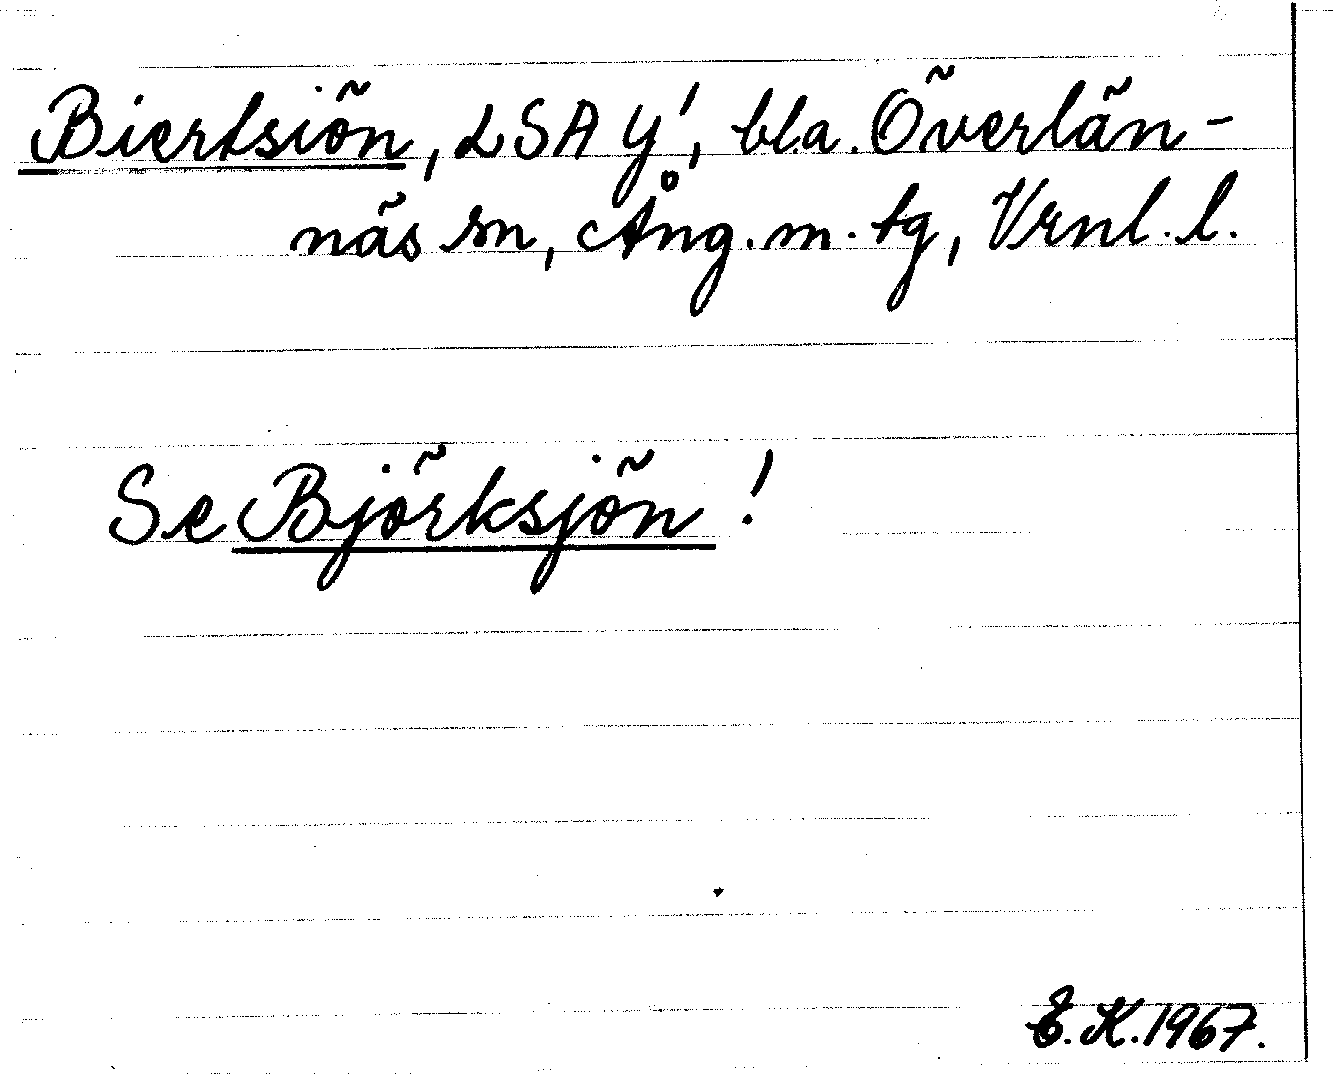 Biertsiön, LSA Y¹, bl.a. Överlän-
näs sn, Ång. m. tg, Vrnl. l.
Se Björksjön!
E.K. 1967.